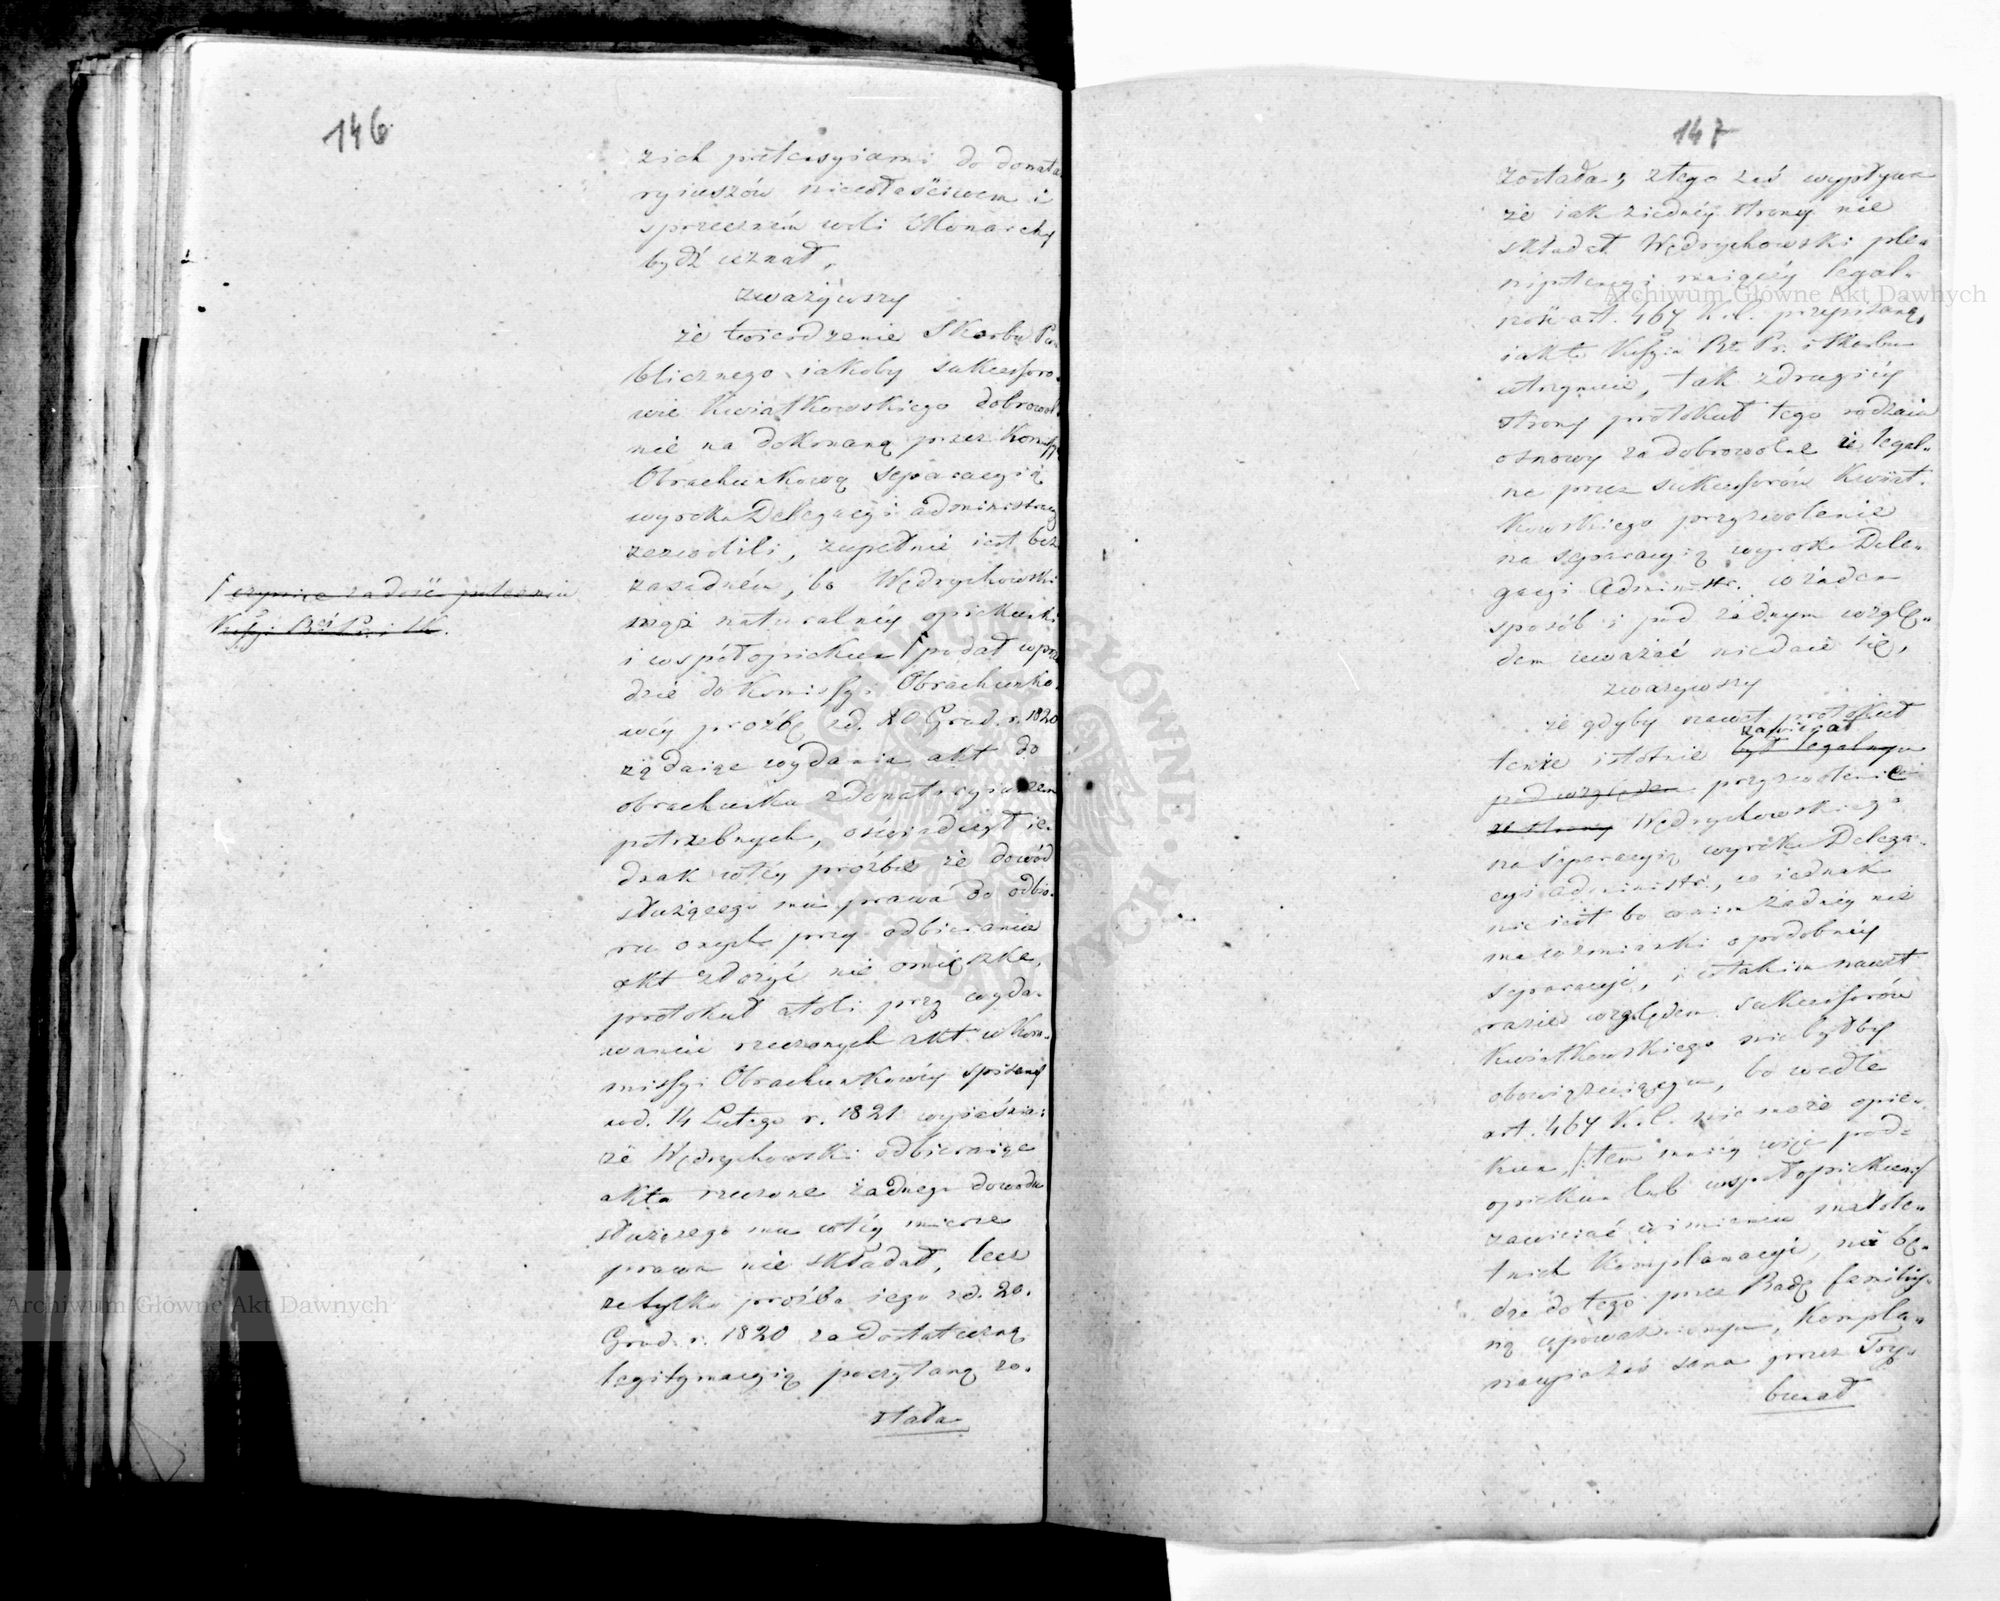 146
zich pretensyiami do donata
ryiuszów niewłaściwem i
sprzecznem woli Monarchy
bydź uznał,
zważywszy
że twierdzenie Skarbu Pu
blicznego iakoby sukcessoro
wie Kwiatkowskiego dobrowol
nie na dokonaną przez Kommissyą
Obrachunkową separacyią
wyroku Delegacyi administracy
zezwolili, zupełnie iest bez
zasadném, bo Wędrychowski
mąż naturalnéy opiekunki
i współopiekun podał wpraw
dzie do Kommissyi Obrachunko
wéy prośbę z d. 20 Grud. r. 1820
żądaiąc wydania akt do
obrachunku z donataryiuszem
potrzebnych, oświadczył ie=
dnak w téy prośbie że dowód
służącego mu prawa do odbio=
ru onych przy odbieraniu
akt złożyć nie omieszka,
protokuł atoli przy wyda=
waniu rzeczonych akt w Kom=
missyi Obrachunkowéy spisany
w d. 14 Lutego r. 1821 wyiaśnia:
że Wędrychowski odbieraiąc
akta rzeczone żadnego dowodu
służącego mu w téy mierze
prawa nie składał, lecz
że tylko prośba iego z d. 20.
Grud. r. 1820 za dostateczną
legitymacyią poczytaną zo=
stała
czyniąc zadość poleceniu
147
została; z tego zaś wypływa
że iak z iednéy strony nie
składał Wędrychowski ple=
nipotencyi maiącéy legal=
ność art. 467 K. C. przepisaną,
iak to Kommissyia Rz. Pr. i Skarbu
utrzymuie, tak z drugiéy
strony protokuł tego rodzaiu
osnowy za dobrowolne i legal=
ne przez sukcessorów Kwiat=
kowskiego przyzwolenie
na separacyią wyroku Dele=
gacyi Administr. w żaden
sposób i pod żadnym wzglę=
dem uważać niedaie się,
zważywszy
że gdyby nawet protokuł
zawierał
tenże istotnie był legalnym
pod względem przyzwolenie
ze strony Wędrychowskiego
na separacyią wyroku Delega=
cyi administr., co iednak
nie iest bo w nim żadnéy nie
ma wzmianki o podobnéy
separacyi, i w takim nawet
razie względem sukcessorów
Kwiatkowskiego nie byłby
obowiązuiącym, bo wedle
art. 467 K. C. nie może opie=
kun, tem mniéy więc pod=
opiekun lub współopiekun
zawierać w imieniu małole=
tnich Komplanacyi, nie bę=
dąc do tego przez Radę familiy=
ną upoważnionym, Kompla=
nacyia zaś sama przez Try=
bunał